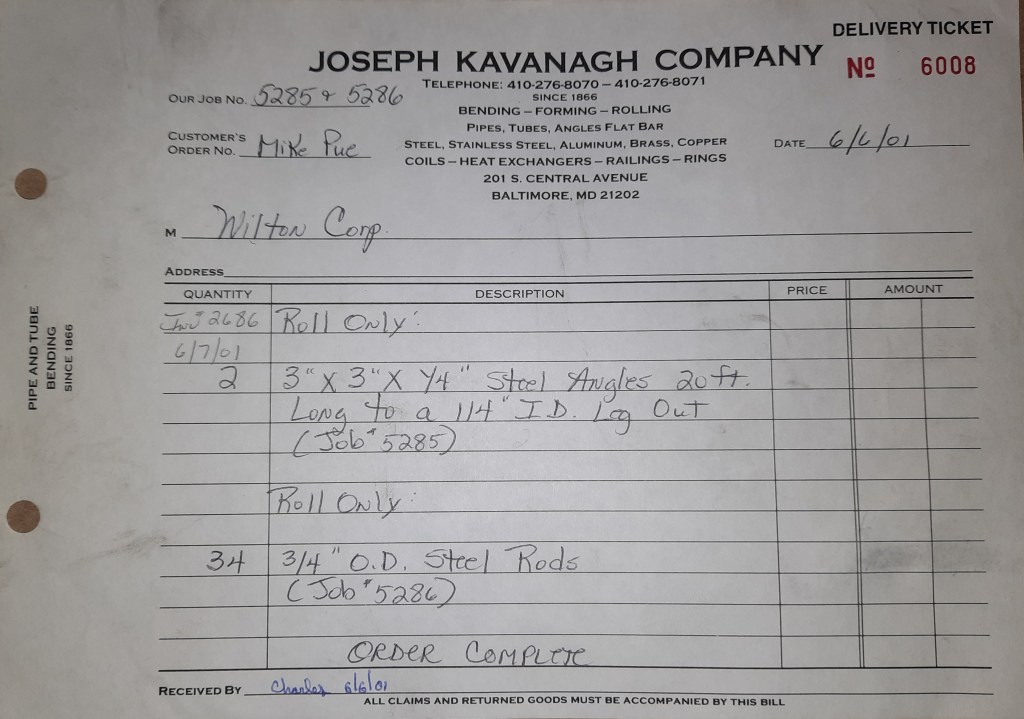 DELIVERY TICKET
JOSEPH KAVANAGH COMPANY
Nº 6008
TELEPHONE: 410-276-8070 – 410-276-8071
SINCE 1866
OUR JOB NO. 5285 & 5286
BENDING – FORMING – ROLLING
PIPES, TUBES, ANGLES FLAT BAR
CUSTOMER'S ORDER NO. Mike Pue
STEEL, STAINLESS STEEL, ALUMINUM, BRASS, COPPER
DATE 6/6/01
COILS – HEAT EXCHANGERS – RAILINGS – RINGS
201 S. CENTRAL AVENUE
BALTIMORE, MD 21202
M Wilton Corp.
ADDRESS
QUANTITY DESCRIPTION PRICE AMOUNT
Inv 2686 Roll Only:
6/7/01
2 3" X 3" X 1/4" Steel Angles 20 ft.
Long to a 114" I.D. Leg Out
(Job # 5285)
Roll Only:
34 3/4" O.D. Steel Rods
(Job # 5286)
ORDER COMPLETE
RECEIVED BY Charles 6/6/01
ALL CLAIMS AND RETURNED GOODS MUST BE ACCOMPANIED BY THIS BILL
PIPE AND TUBE
BENDING
SINCE 1866